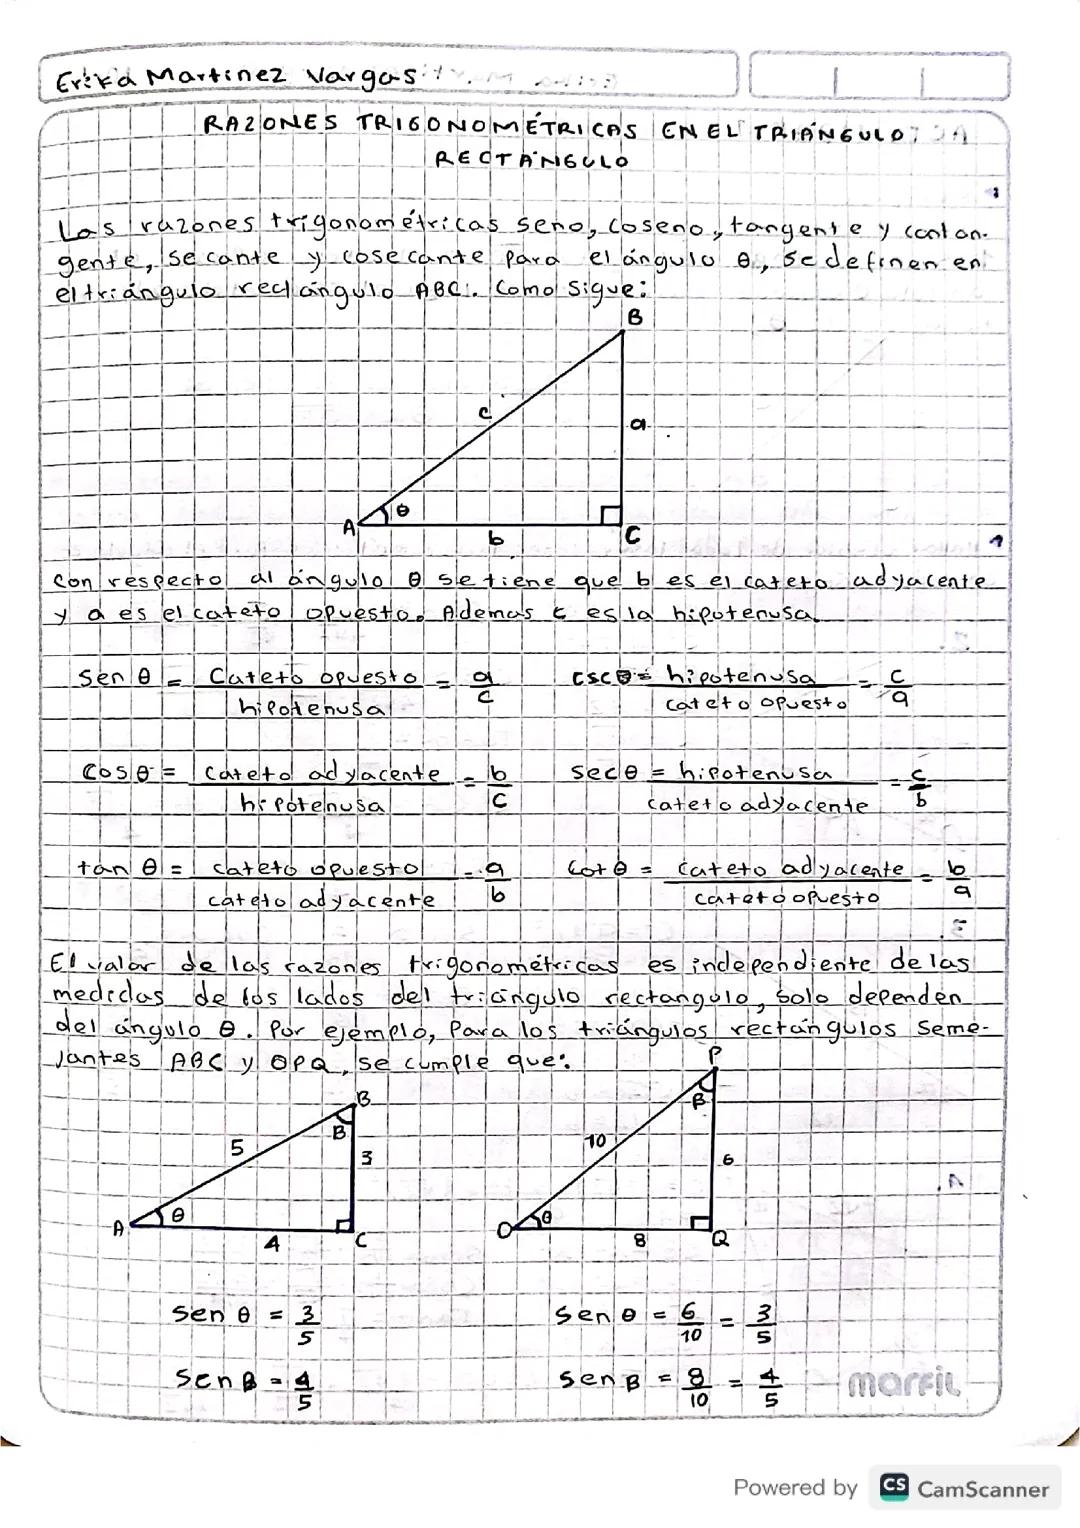 Erika Martinez Vargas
RAZONES TRIGONOMÉTRICAS EN EL TRIÁNGULO
RECTÁNGULO
Las razones trigonométricas seno, coseno, tangente y contan-
gente, secante y cosecante para el ángulo θ, se definen en
el triángulo rectángulo ABC. Como sigue:
B
c
a
A
θ
b
C
Con respecto al ángulo θ se tiene que b es el cateto adyacente
y a es el cateto opuesto. Ademas c es la hipotenusa.
Sen θ = Cateto opuesto / hipotenusa = a/c
csc θ = hipotenusa / cateto opuesto = c/a
Cos θ = cateto adyacente / hipotenusa = b/c
Sec θ = hipotenusa / cateto adyacente = c/b
tan θ = cateto opuesto / cateto adyacente = a/b
Cot θ = cateto adyacente / cateto opuesto = b/a
El valor de las razones trigonométricas es independiente de las
medidas de los lados del triángulo rectangulo, Solo dependen
del ángulo θ. Por ejemplo, Para los triángulos rectángulos Seme-
jantes ABC y OPQ, se cumple que:
B
B
5
3
A
θ
4
C
P
B
10
6
O
θ
8
Q
Sen θ = 3/5
Sen θ = 6/10 = 3/5
Sen B = 4/5
Sen B = 8/10 = 4/5
marfil
Powered by CS CamScanner